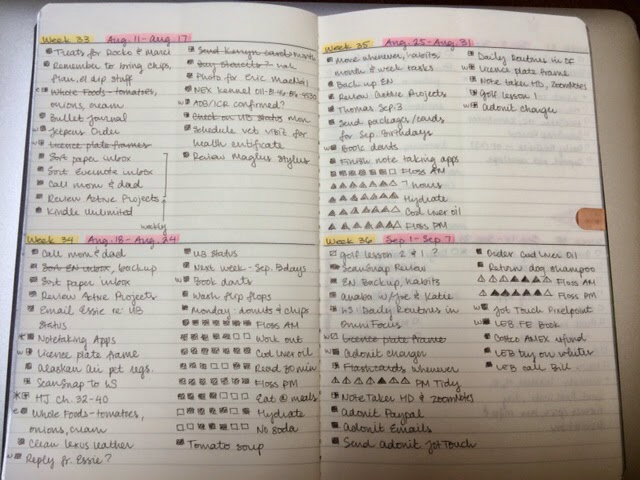 Week 33 Aug. 11 - Aug. 17
Treats for Rocko &
Remember to bring chips,
flan, & dip stuff
Whole Foods - tomatoes,
onions, cream
Bullet Journal
Jetpens Order
Licence plate frames
Sort paper inbox
Sort Evernote inbox
Call mom & dad
Review Active Projects
Kindle Unlimited
weekly
Send
Photo for Eric
NEX kernel
ADB/ICR confirmed?
Check on UB Status mon
Schedule vet visit for
health certificate
Review Maglus stylus
Week 34 Aug. 18 - Aug. 24
Call mom & dad
Sort EN inbox, backup
Sort paper inbox
Review Active Projects
Email Essie re: UB
Status
Notetaking Apps
Licence plate frame
Alaskan Air pet regs.
ScanSnap to WS
HJ Ch. 32-40
Whole Foods - tomatoes,
onions, cream
Clean lexus leather
Reply fr. Essie?
UB Status
Next week - Sep. Bdays
Book darts
Wash flip flops
Monday: donuts & chips
Floss AM
Work out
Cod Liver oil
Read 30 min
Floss PM
Eat @ meals
Hydrate
No soda
Tomato soup
Week 35 Aug. 25 - Aug. 31
Move whenever, habits
month & week tasks
Back up EN
Review Active Projects
Thomas Sep. 3
Send packages/cards
for Sep. Birthdays
Book darts
Finish note taking apps
Floss AM
7 hours
Hydrate
Cod Liver oil
Floss PM
Daily Routines in OF
Licence plate frame
Note taker HD, ZoomNotes
Golf lesson 1
Adonit charger
Week 36 Sep 1 - Sep 7
Golf lesson 2 & 1 ?
ScanSnap Review
EN Backup, habits
w/ Joe & Katie
WS Daily Routines in
OmniFocus
Licence plate frame
Adonit charger
Flashcards whenever
PM Tidy
NoteTaker HD & ZoomNotes
Adonit Paypal
Adonit Emails
Send Adonit Jot Touch
Order Cod Liver Oil
Return dog shampoo
Floss AM
Floss PM
Jot Touch Pixelpoint
LEB FE Book
Costco AMEX refund
LEB
LEB call Bill